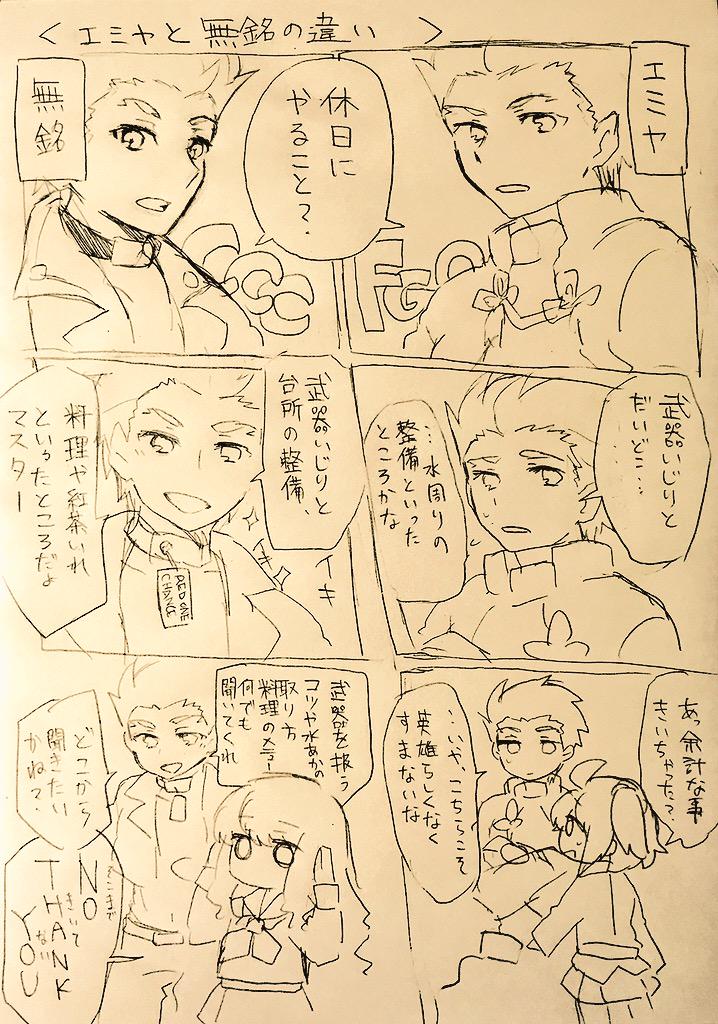 <エミヤと無銘の違い>
エミヤ
無銘
休日に
やること?
FGO
CCC
武器いじりと
だいどこ…
…水周りの
整備といった
ところかな
武器いじりと
台所の整備、
料理や紅茶いれ
といったところだよ
マスター
イキ
イキ
RED ONE
CHANCE
あっ余計な事
きいちゃった?
…いや、こちらこそ
英雄らしくなく
すまないな
武器を扱う
コツや水あかの
取り方
料理のメニュー
何でも
聞いてくれ
どこから
聞きたい
かね?
NO
THANK
YOU
そこまで
きいて
ない